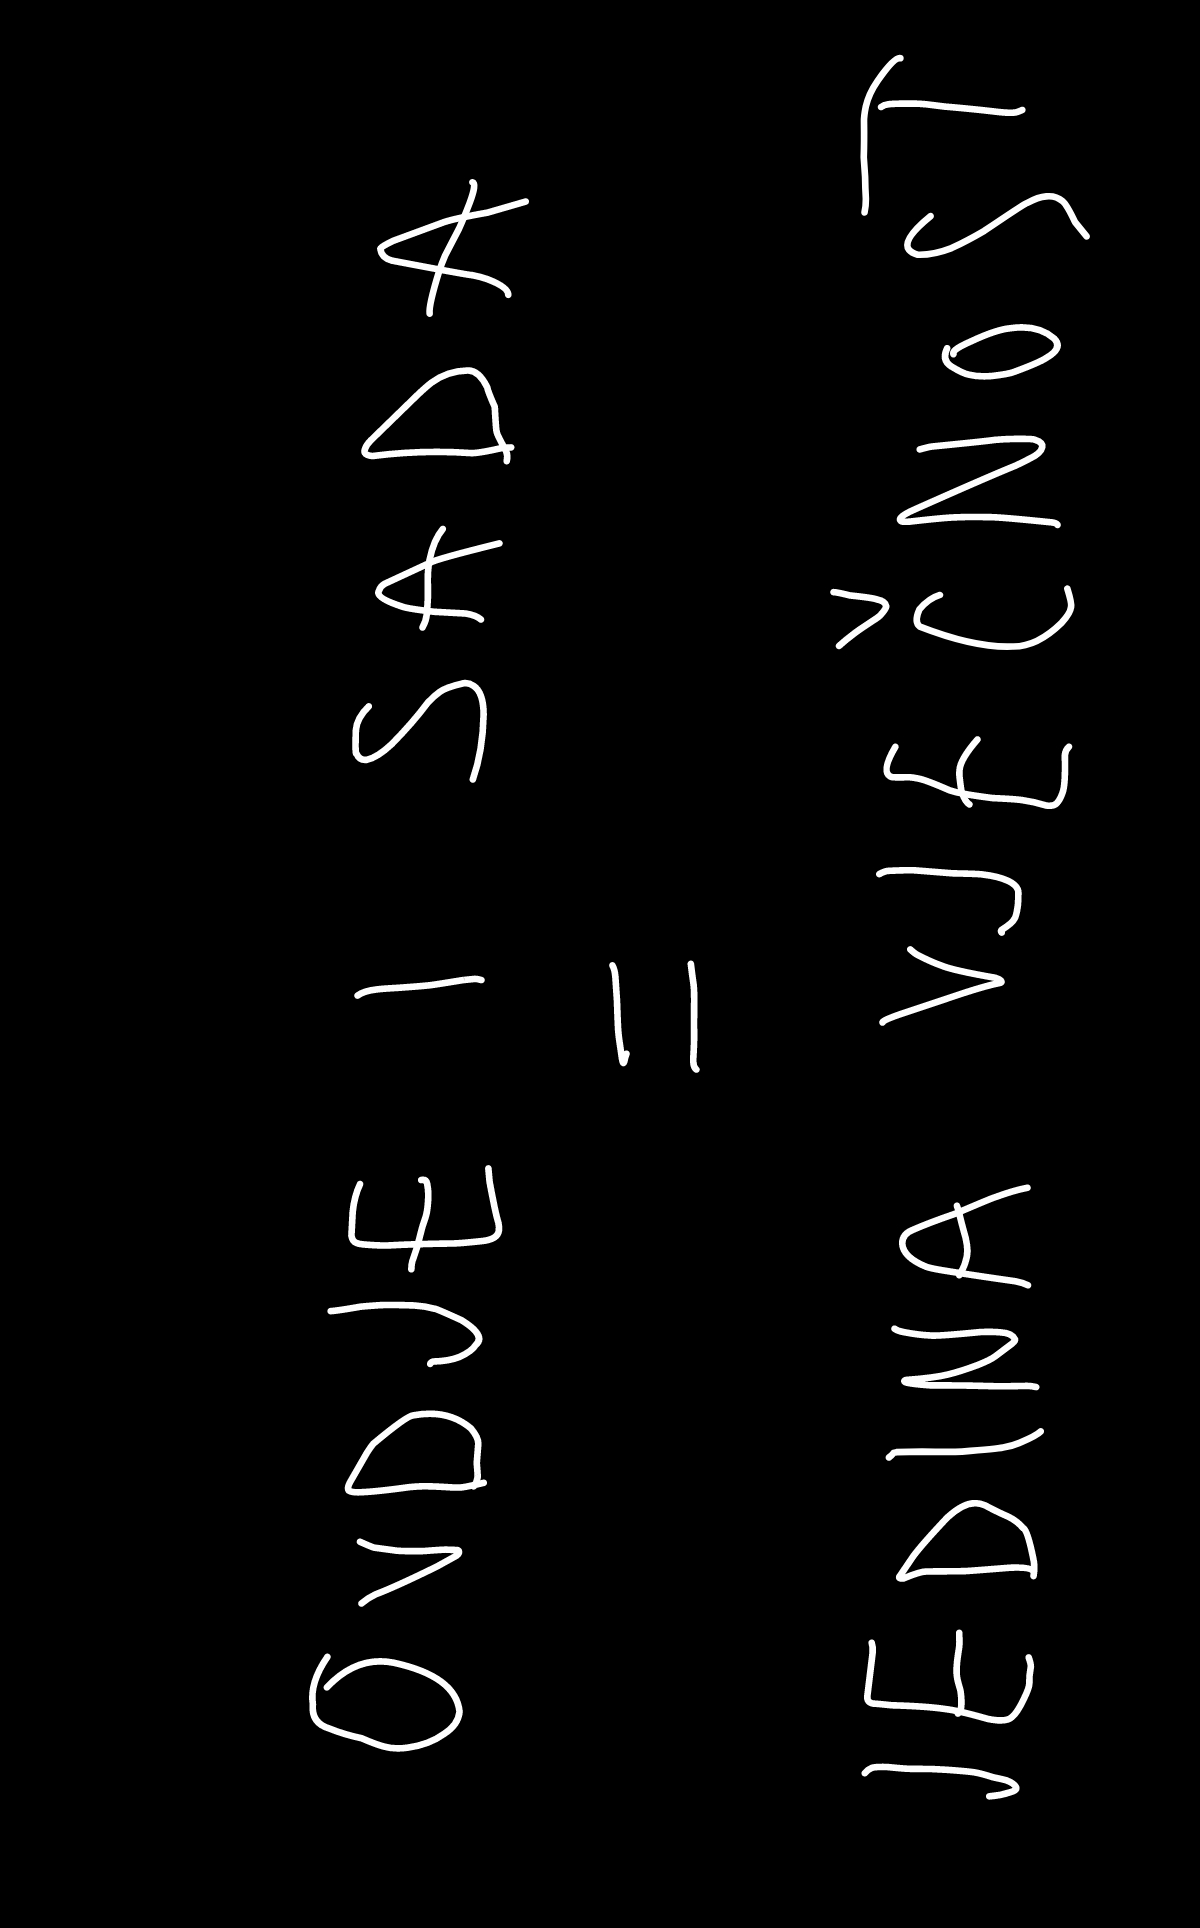 OVDJE I SADA
=
JEDINA VJEČNOST